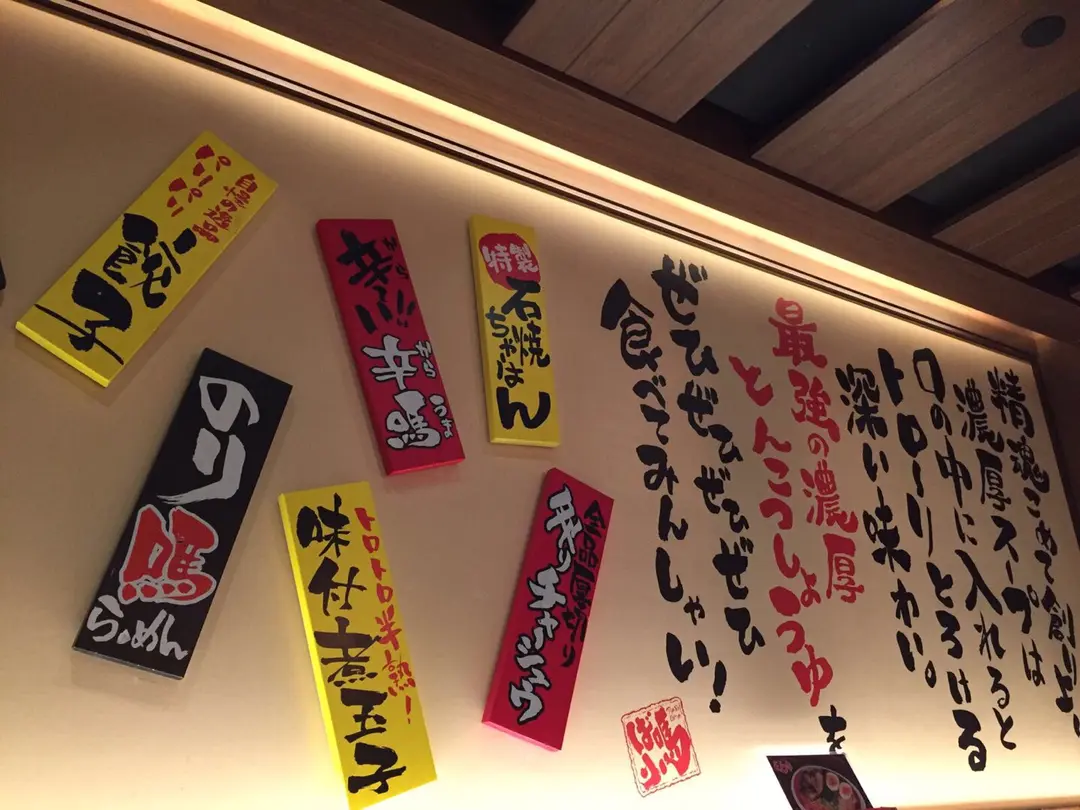 精魂こめて創り上
濃厚スープは
口の中に入れると
トロ〜リとろける
深い味わい。
最強の濃厚
とんこつしょうゆ
を
ぜひぜひぜひぜひ
食べてみんしゃい!
特製
石焼
ちゃーはん
辛〜い!!
から
辛鳴
から うま
自慢の逸品
パーペい
餃子
のり
鳴
らーめん
トロトロ半熟!
味付煮玉子
炙りチャーシュウ
ばり鳴